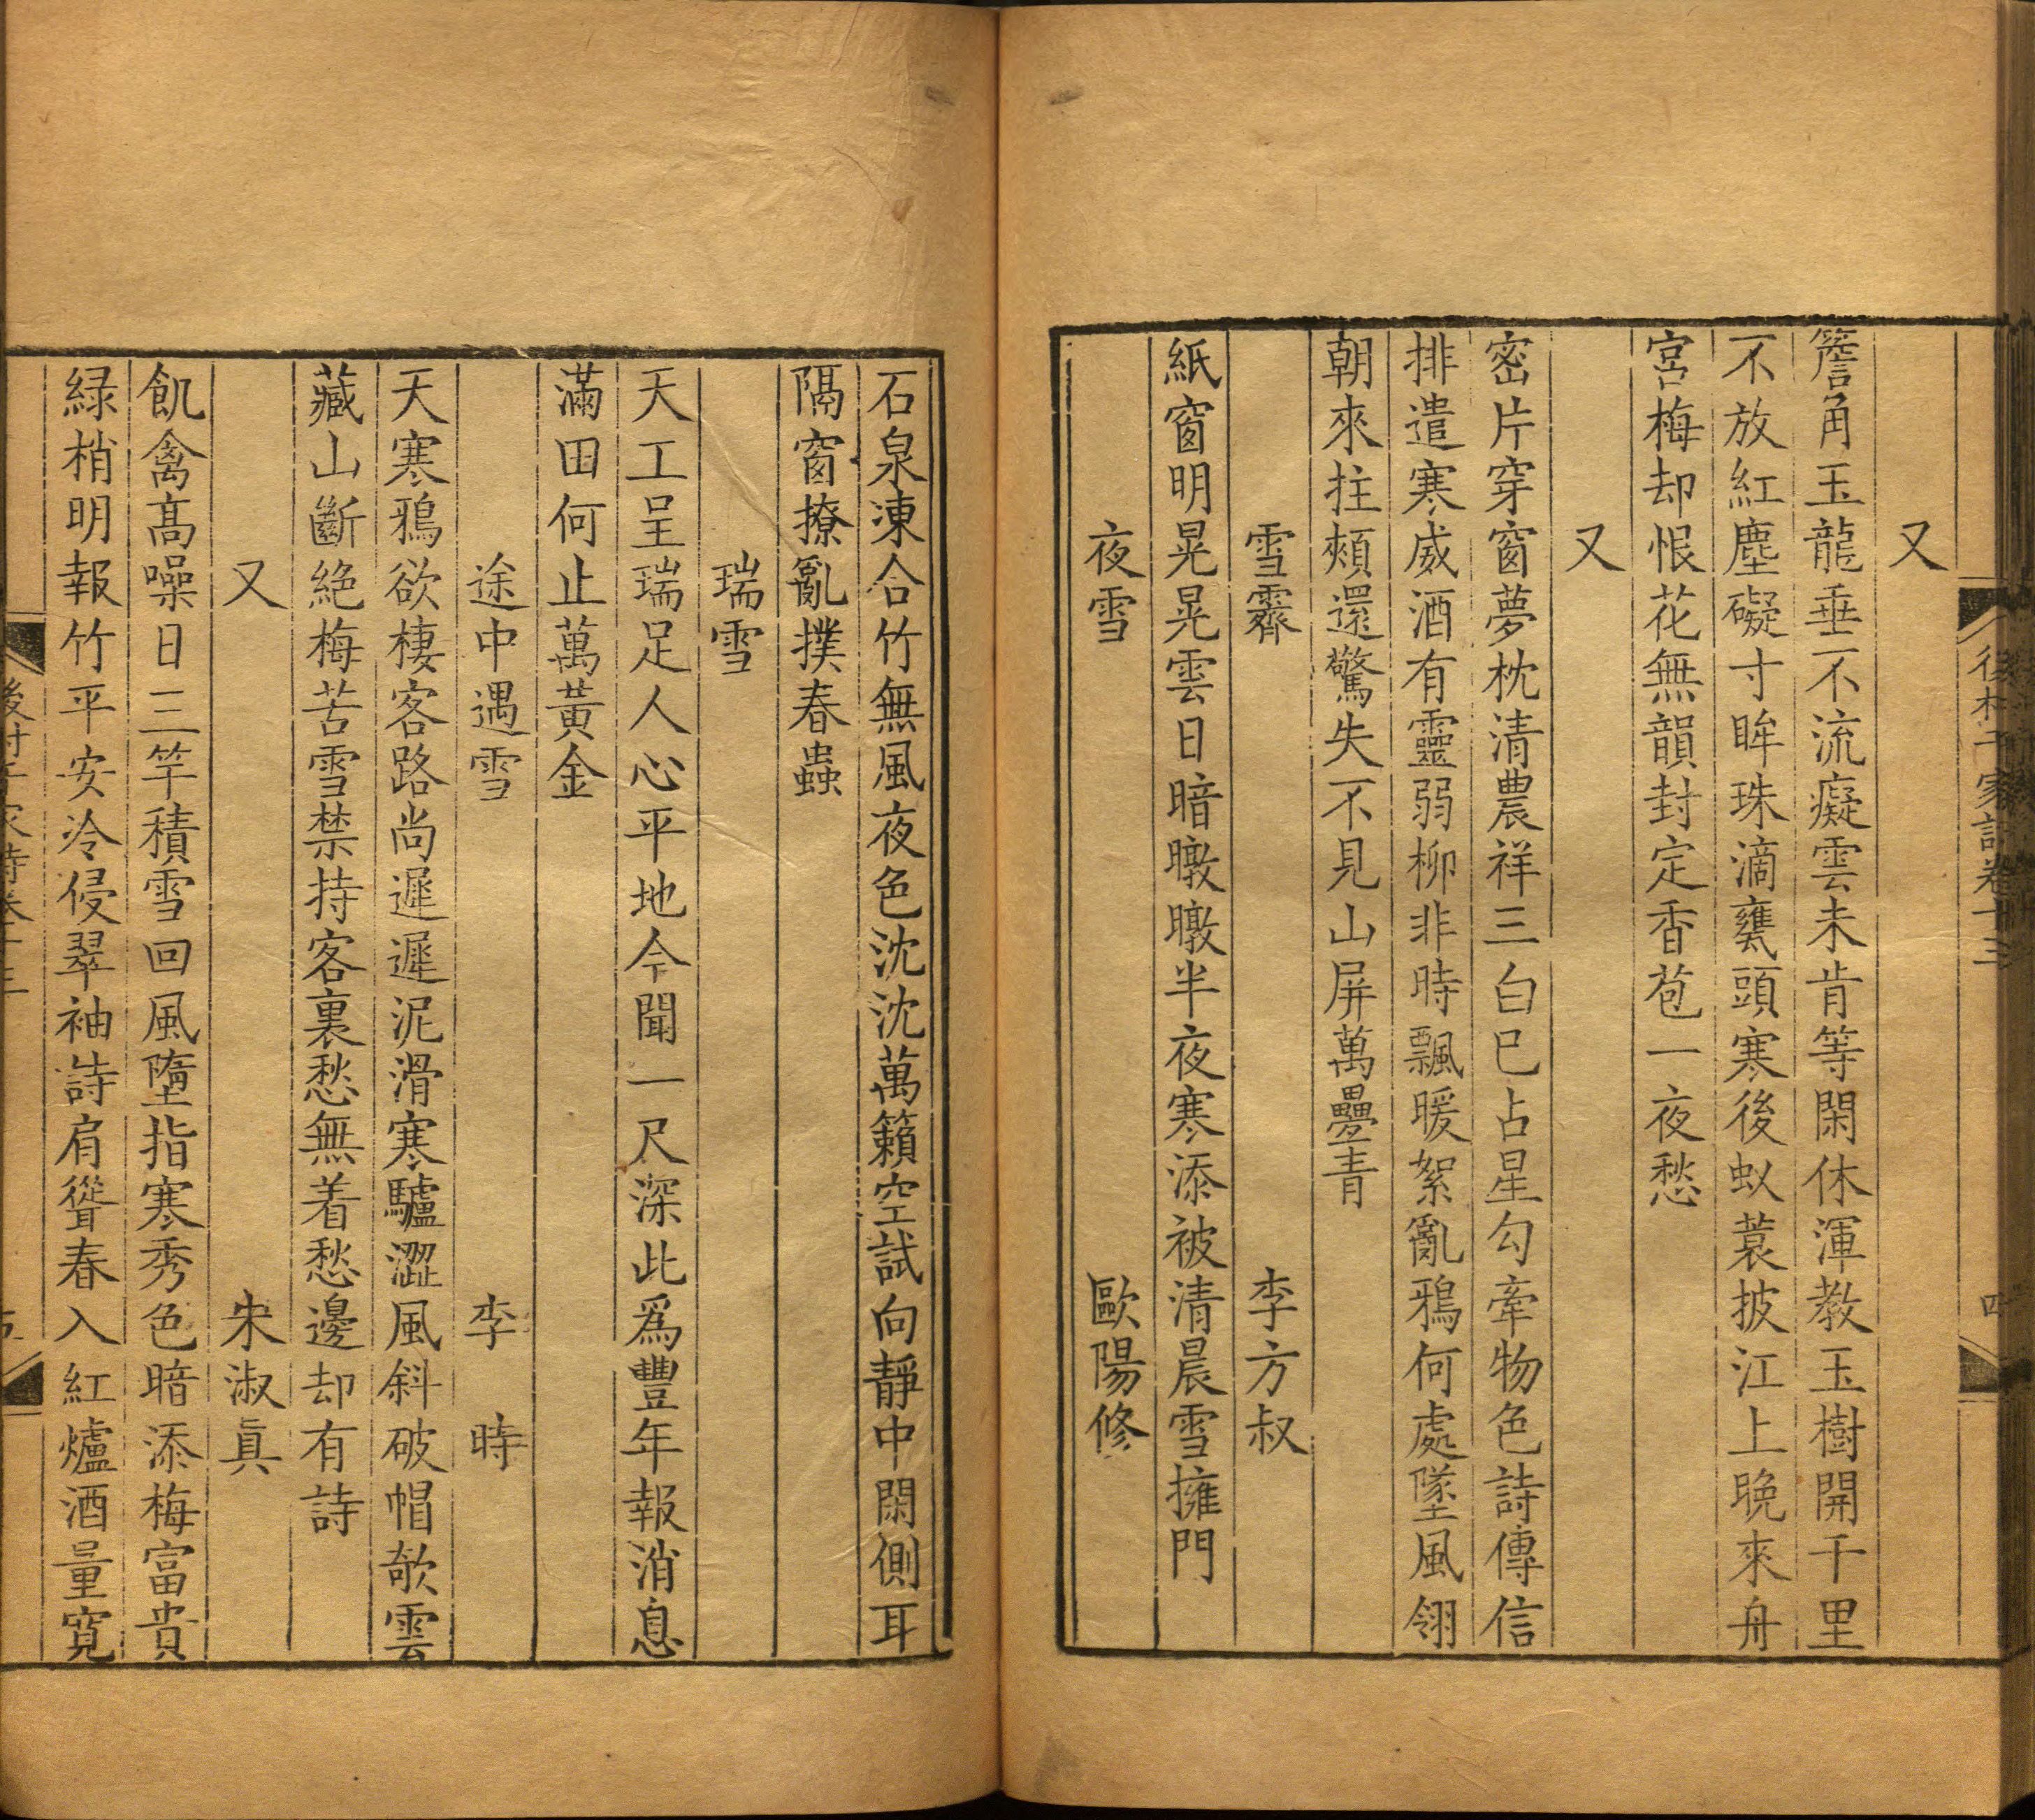 後村千家詩卷十三
四
又
簷角玉龍垂不流癡雲未肯等閑休渾教玉樹開千里
不放紅塵礙寸眸珠滴甕頭寒後蚁蓑披江上晚來舟
宮梅却恨花無韻封定香苞一夜愁
又
密片穿窗夢枕清農祥三白巳占星勾牽物色詩傳信
排遣寒威酒有靈弱柳非時飄暖絮亂鴉何處墜風翎
朝來拄頰還驚失不見山屏萬疊青
雪霽 李方叔
紙窗明晃晃雲日暗暾暾半夜寒添被清晨雪擁門
夜雪 歐陽修
石泉凍合竹無風夜色沈沈萬籟空試向靜中閑側耳
隔窗撩亂撲春蟲
瑞雪
天工呈瑞足人心平地今聞一尺深此爲豐年報消息
滿田何止萬黃金
途中遇雪 李時
天寒鴉欲棲客路尚遲遲泥滑寒驢澀風斜破帽欹雲
藏山斷絕梅苦雪禁持客裏愁無着愁邊却有詩
又 朱淑眞
飢禽高噪日三竿積雪回風墮指寒秀色暗添梅富貴
綠梢明報竹平安冷侵翠袖詩肩聳春入紅爐酒量寬
後村千家詩卷十三